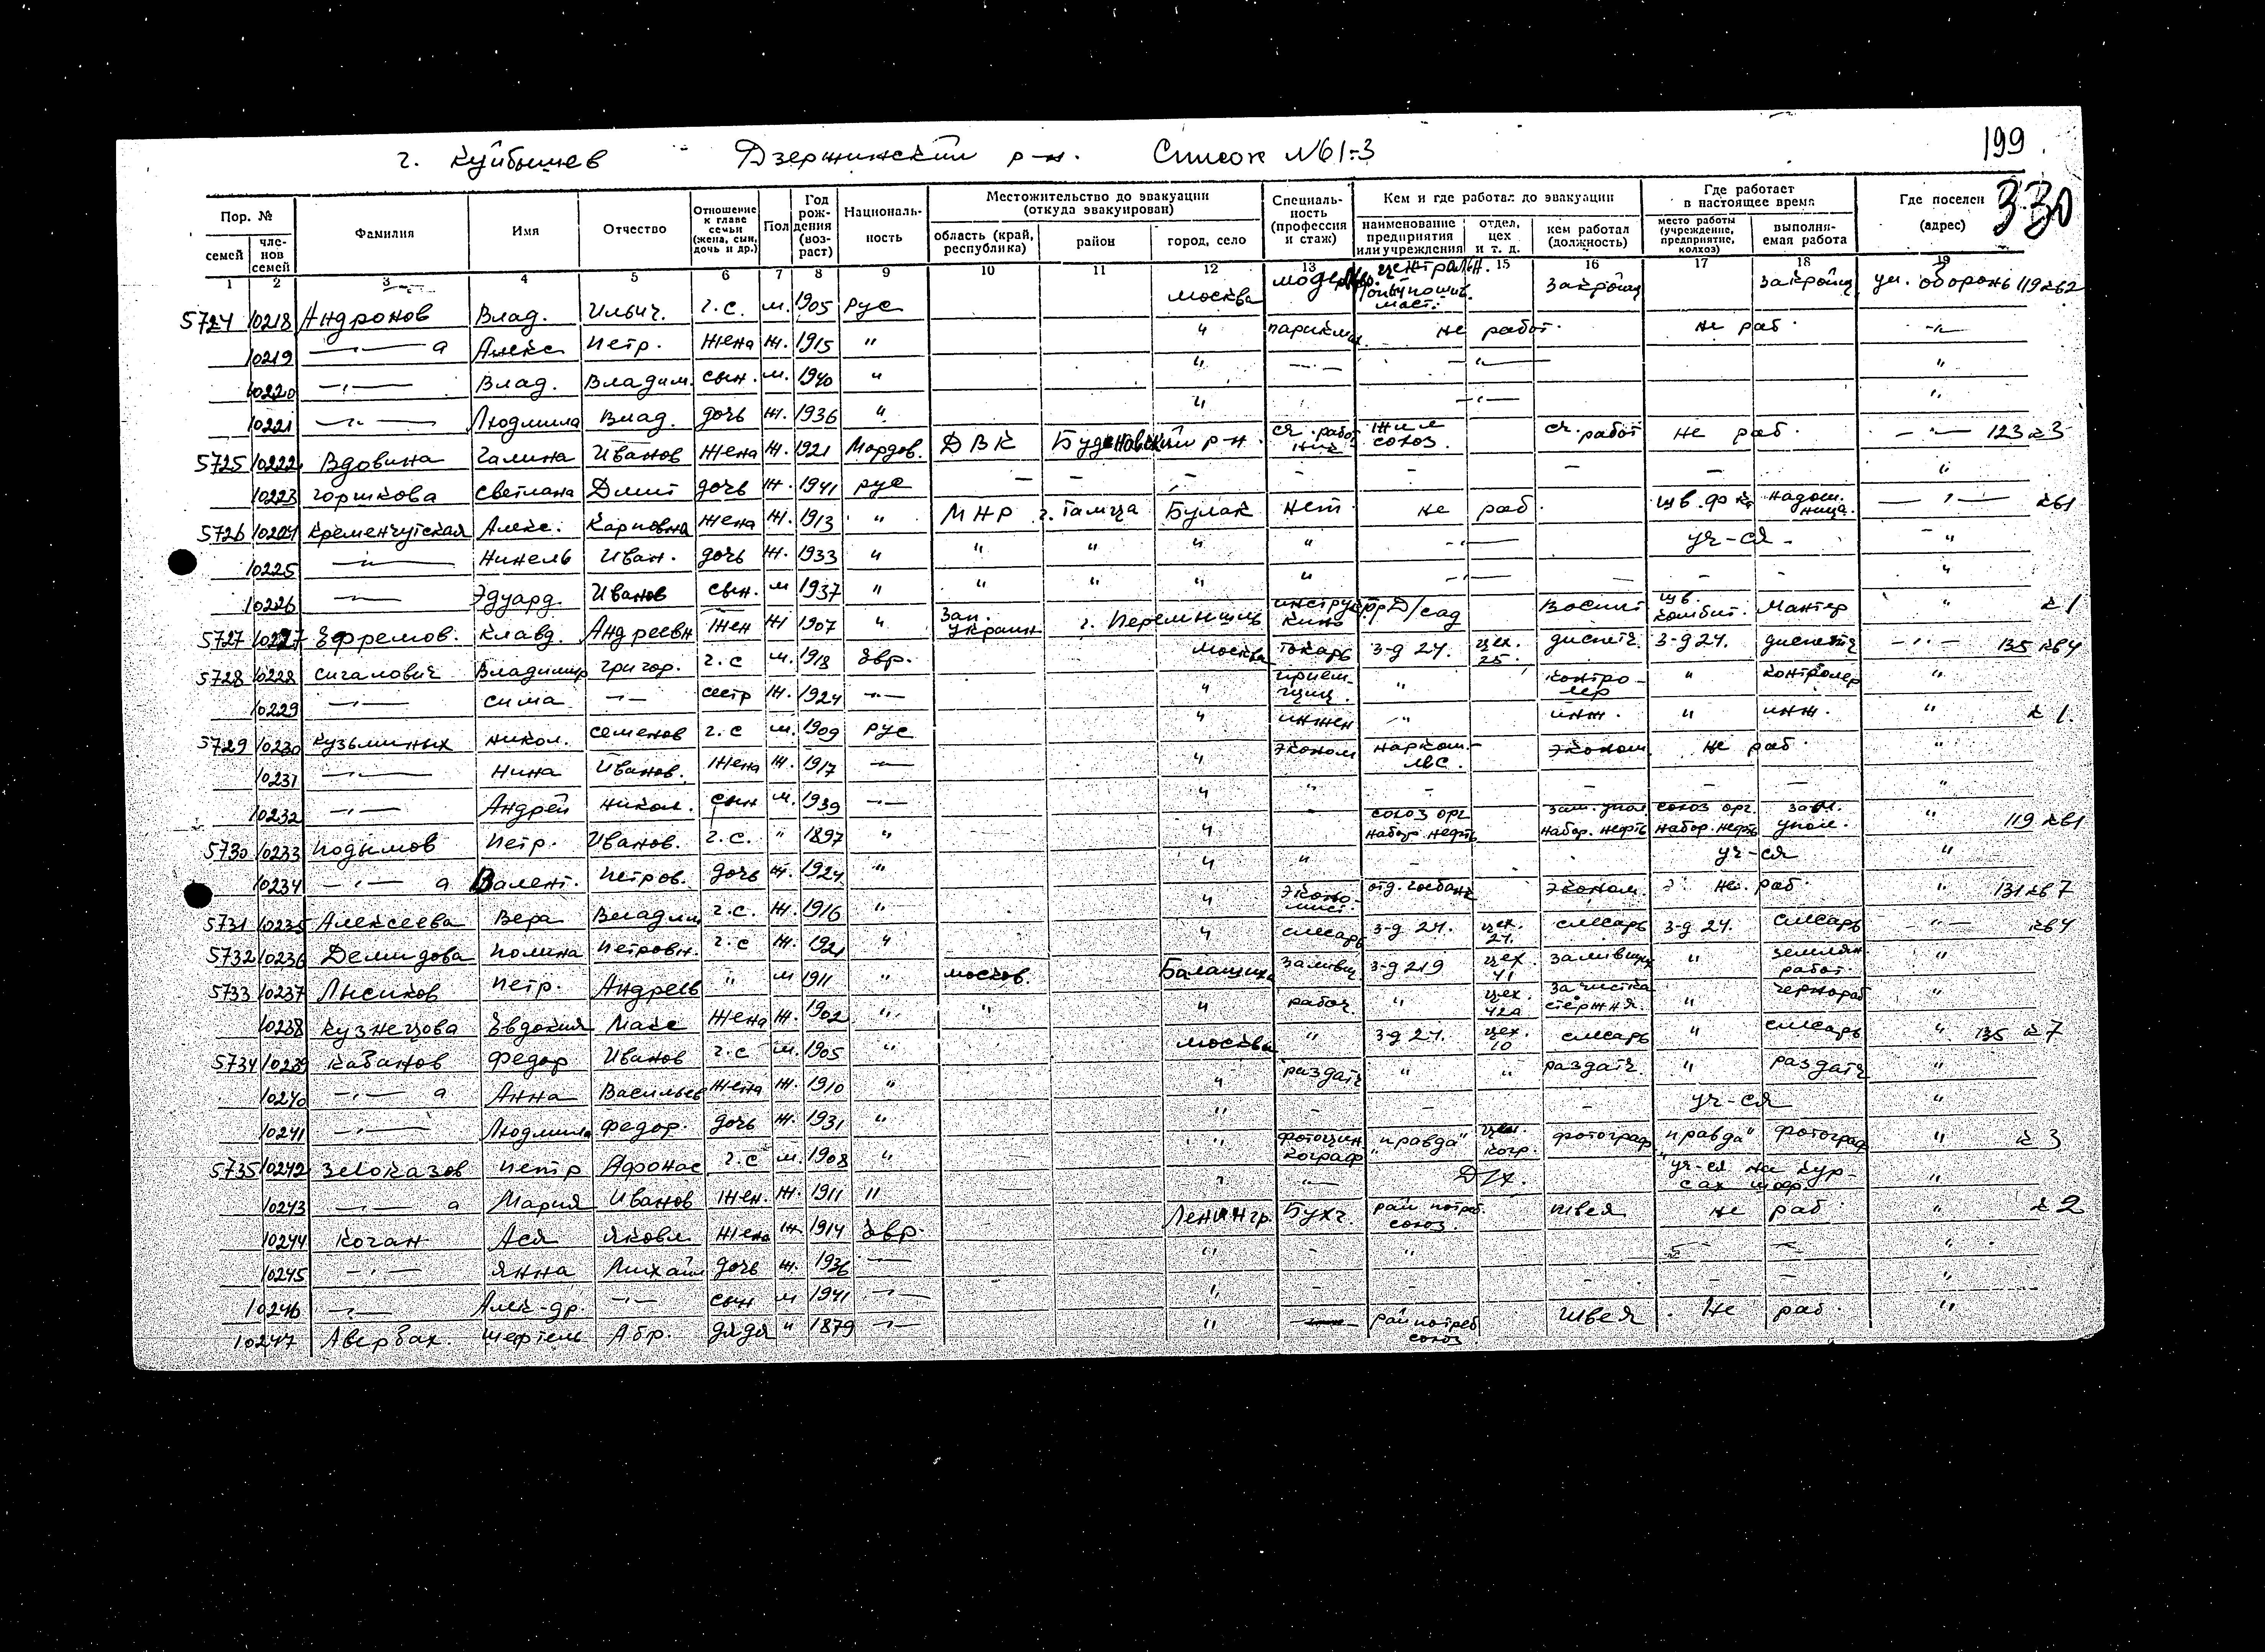 г. Куйбышев Дзержинский р-н. Список №61-3 199
330
Пор. № Фамилия Имя Отчество Отношение к главе семьи (жена, сын, дочь и др.) Пол Год рождения (возраст) Националь-ность Местожительство до эвакуации (откуда эвакуирован) Специаль-ность (профессия и стаж) Кем и где работал до эвакуации Где работает в настоящее время Где поселен (адрес)
семей чле-нов семей область (край, республика) район город, село наименование предприятия или учреждения отдел, цех и т. д. кем работал (должность) место работы (учреждение, предприятие, колхоз) выполня-емая работа
1 2 3 4 5 6 7 8 9 10 11 12 13 15 16 17 18 19
5724 10218 Андронов Влад. Ильич. г.с. м. 1905 рус Москва централ. закройщ закройщ ул. оборонь 119 кв2
10219 —"— а Алекс Петр. жена ж. 1915 " " парикмах. не работ. не раб. —"—
10220 —"— Влад. Владим. сын. м. 1940 " " —"— —"— "
10221 —"— Людмила Влад. дочь ж. 1936 " " —"— "
5725 10222 Вдовина Галина Иванов жена ж. 1921 Мордов. ДВК Буденовский р-н. сч. работ ник союз. сч. работ не раб. —"— 123 к 3
10223 Горшкова Светлана Дмит дочь ж. 1941 рус — — — — — — — "
5726 10224 Кременчугская Алекс. Карповна жена ж. 1913 " МНР г. Тамца Булак нет не раб. шв. ф-ка надом. ница. —"— кв1
10225 —"— Нинель Иван. дочь ж. 1933 " " " " " —"— уч-ся - "
10226 —"— Эдуард. Иванов сын. м 1937 " " " " " —"— — — — "
5727 10227 Ефремов. Клавд. Андреевн жен ж 1907 " Зап. Украин г. Перемышль инструк. кино д/сад воспит шв. комбит. " к 1
5728 10228 Сигалович Владимир Григор. г.с м. 1918 евр. Москва токарь з-д 24. цех. 25. диспетч. з-д 24. диспетч —"— 135 кв4
10229 —"— Сима —"— сестр ж. 1924 —"— " прием-щиц. " контро-лер " контролер "
5729 10230 Кузьминых Никол. Семенов г.с м. 1909 рус " инжен —"— инж. " инж. " к 1.
10231 —"— Нина Иванов. жена ж. 1917 —"— " эконом нарком. эконом. не раб. "
10232 —"— Андрей Никол. сын м. 1939 —"— " " — — — — "
5730 10233 Подымов Петр. Иванов. г.с. " 1897 " " союз орг набор. нефть зам. упол набор. нефть союз орг. набор. нефть зам. упол. " 119 кв1
10234 —"— а Валент. Петров. дочь ж. 1924 " " " — уч-ся "
5731 10235 Алексеева Вера Владим г.с. ж. 1916 " " эконо-мист. отд. госбанк эконом. не. раб. " 131 кв 7
5732 10236 Демидова Полина Петровн. г.с ж. 1921 " " слесарь з-д 24. цех. 24. слесарь з-д 24. слесарь —"— кв4
5733 10237 Лысиков Петр. Андреев " м 1911 " москов. Балашиха заливщ з-д 219 цех. 41 заливщик " землян. работ. "
10238 Кузнецова Евдокия Макс жена ж. 1902 " " " рабоч " цех. 42а зачистка стержня. " чернораб "
5734 10239 Кабанов Федор Иванов г.с м. 1905 " Москва " з-д 24. цех. 10 слесарь " слесарь " 135 к 7
10240 —"— а Анна Васильев жена ж. 1910 " " раздатч " " раздатч. " раздатч "
10241 —"— Людмила Федор. дочь ж. 1931 " " — — — уч-ся "
5735 10242 Петр Афонас г.с м. 1908 " " фотоцин кограф "Правда" фотограф "Правда" фотограф " к 3
10243 —"— а Мария Иванов жен. ж. 1911 " " —"— Д/х. уч-ся на кур-сах шоф. "
10244 Коган Ася Яковл жена ж 1914 евр. Ленингр. Бухг. рай потреб. союз. швея не раб " к 2
10245 —"— Янна Михайл дочь ж. 1936 —"— " — " — — "
10246 —"— Алек-др. —"— сын м 1941 —"— " — — — — — "
10247 Авербах. Шефтель Абр. дядя " 1879 —"— " — райпотреб союз швея. не раб. "